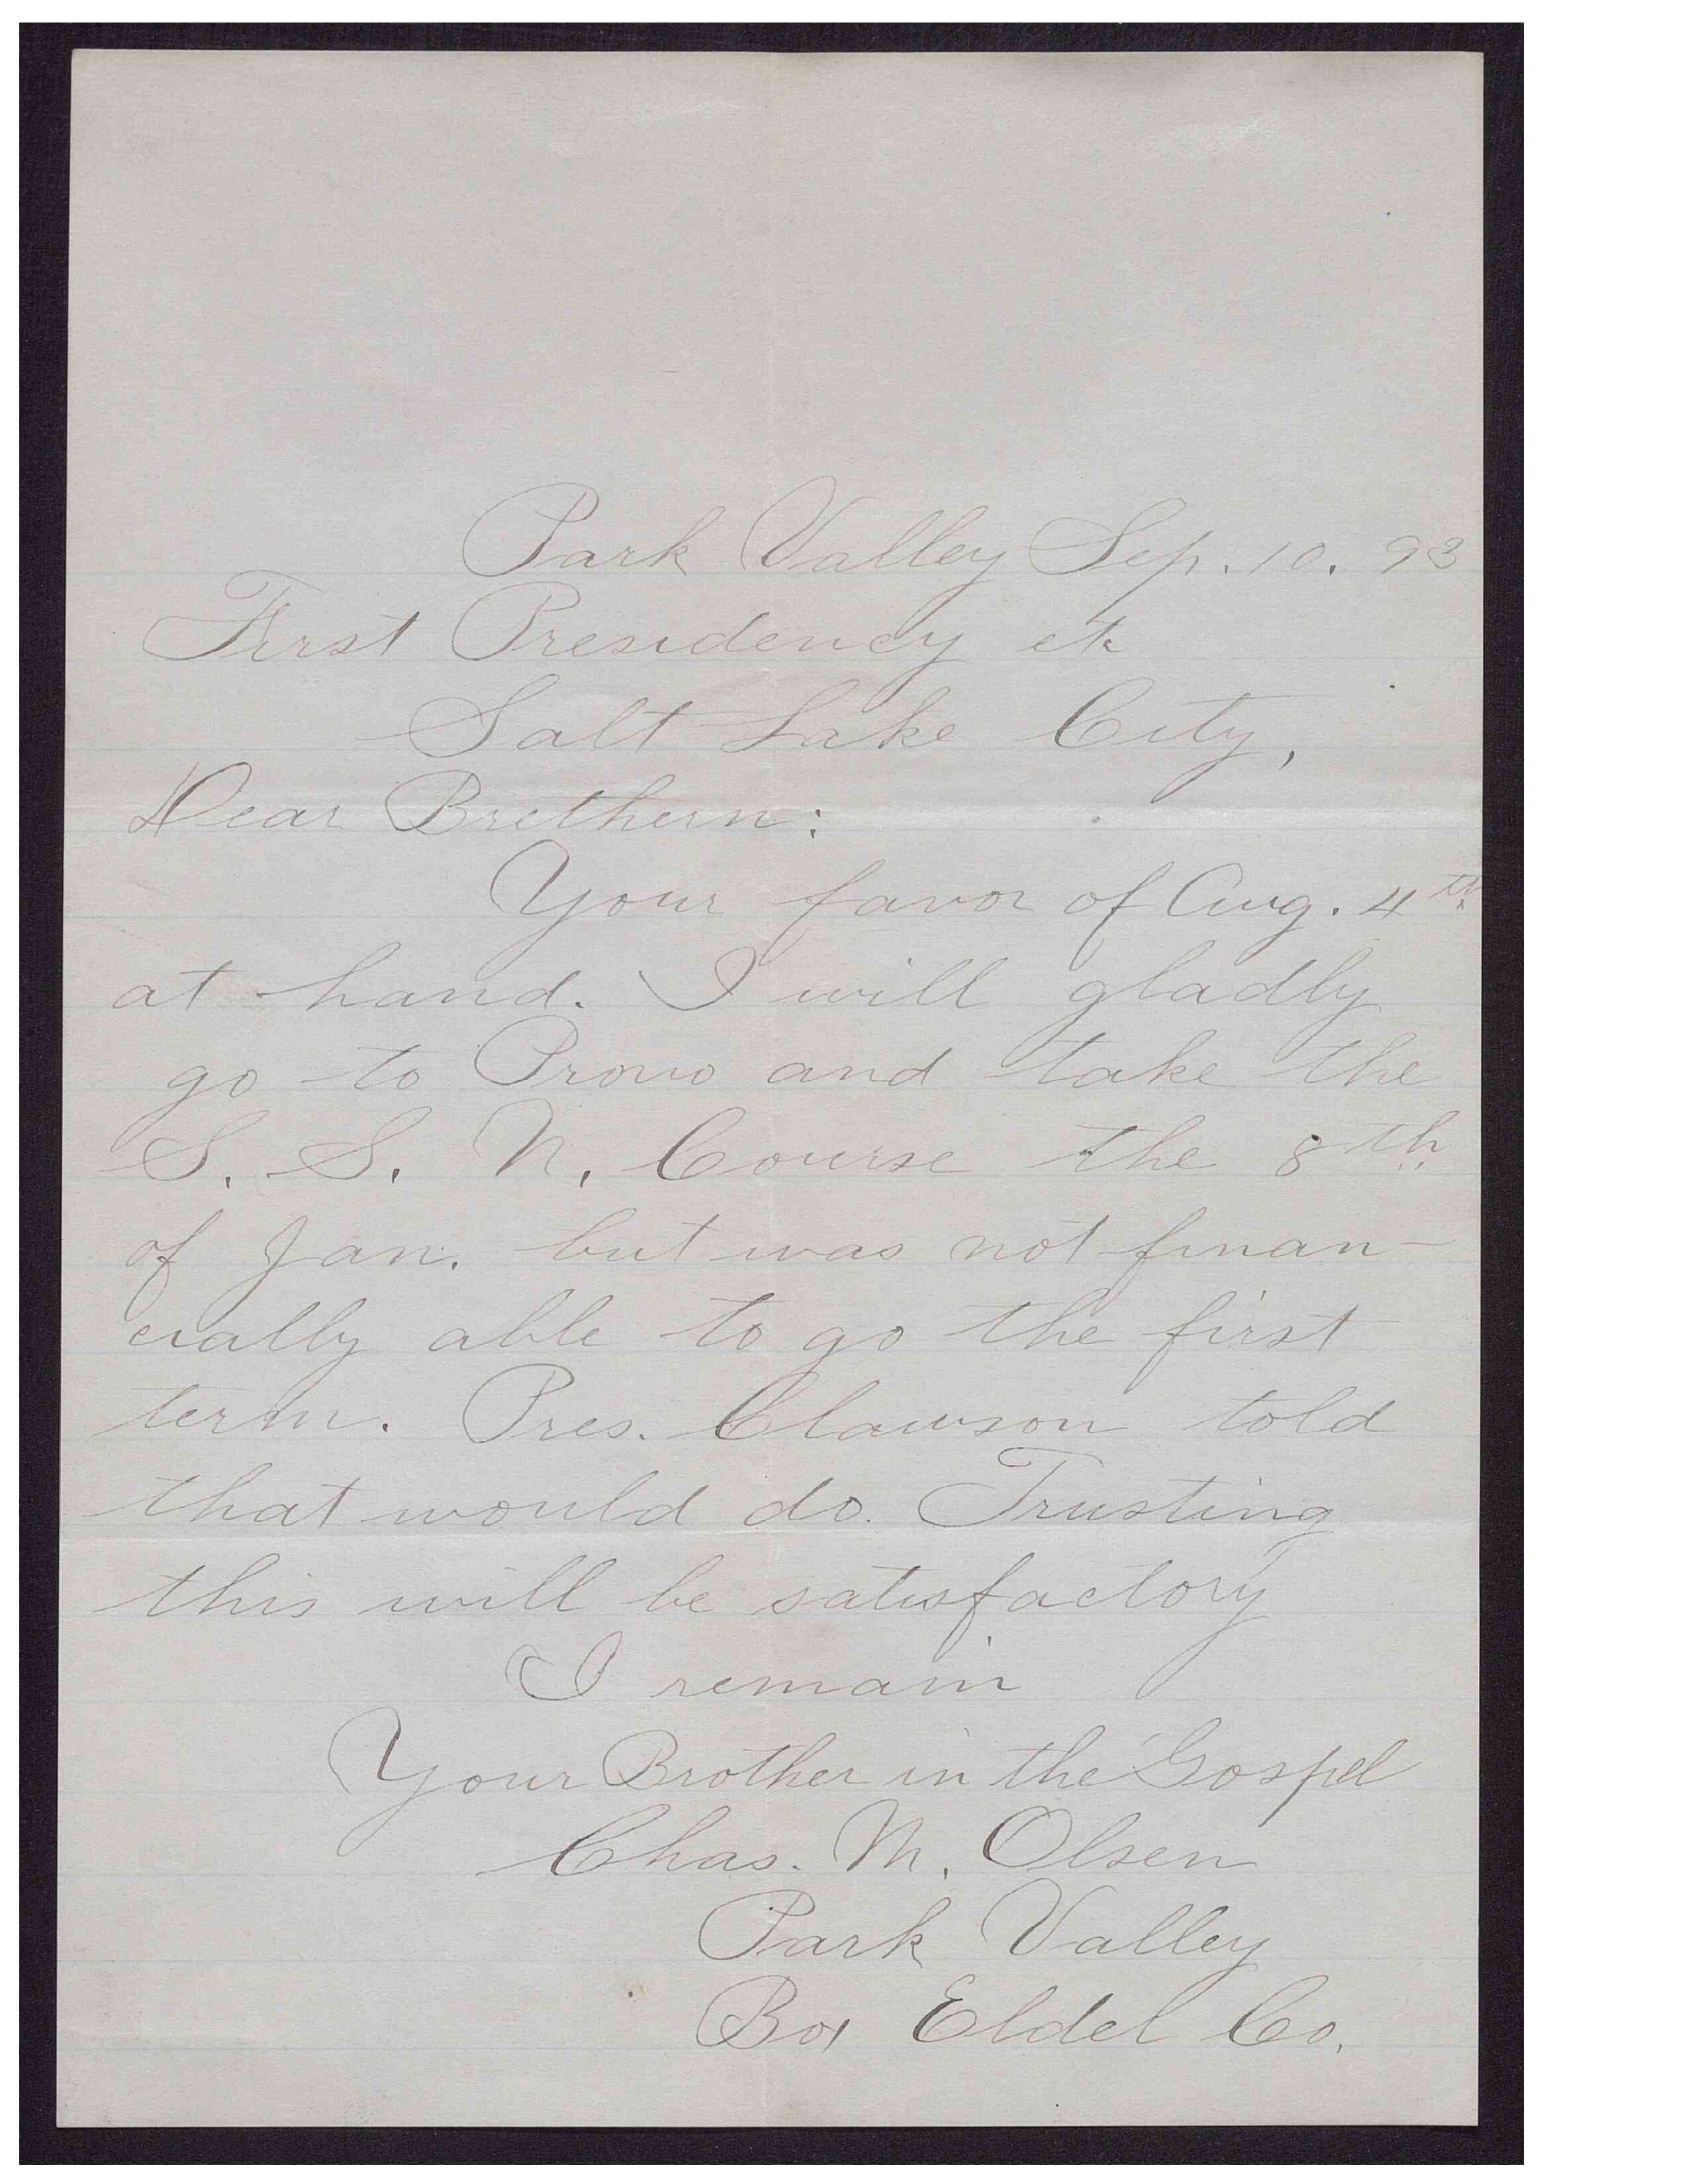 Park Valley Sep. 10. 93
First Presidency etc
Salt Lake City,
Dear Brethern:
Your favor of Aug. 4th
at hand. I will gladly
go to Provo and take the
S. S. N. Course the 8th
of Jan. but was not finan-
cially able to go the first
term. Pres. Clawson told
that would do. Trusting
this will be satisfactory
I remain
Your Brother in the Gospel
Chas. M. Olsen
Park Valley
Box Eldel Co.